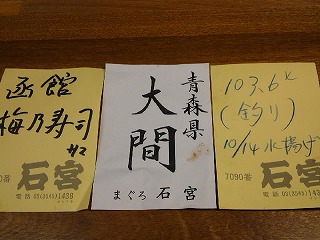 函館
梅乃寿司
サマ
石宮
電話 03(3545)1438
青森県
大間
まぐろ 石宮
103.6k
(釣り)
10/14水揚げ
7090番
石宮
電話 03(3545)1438